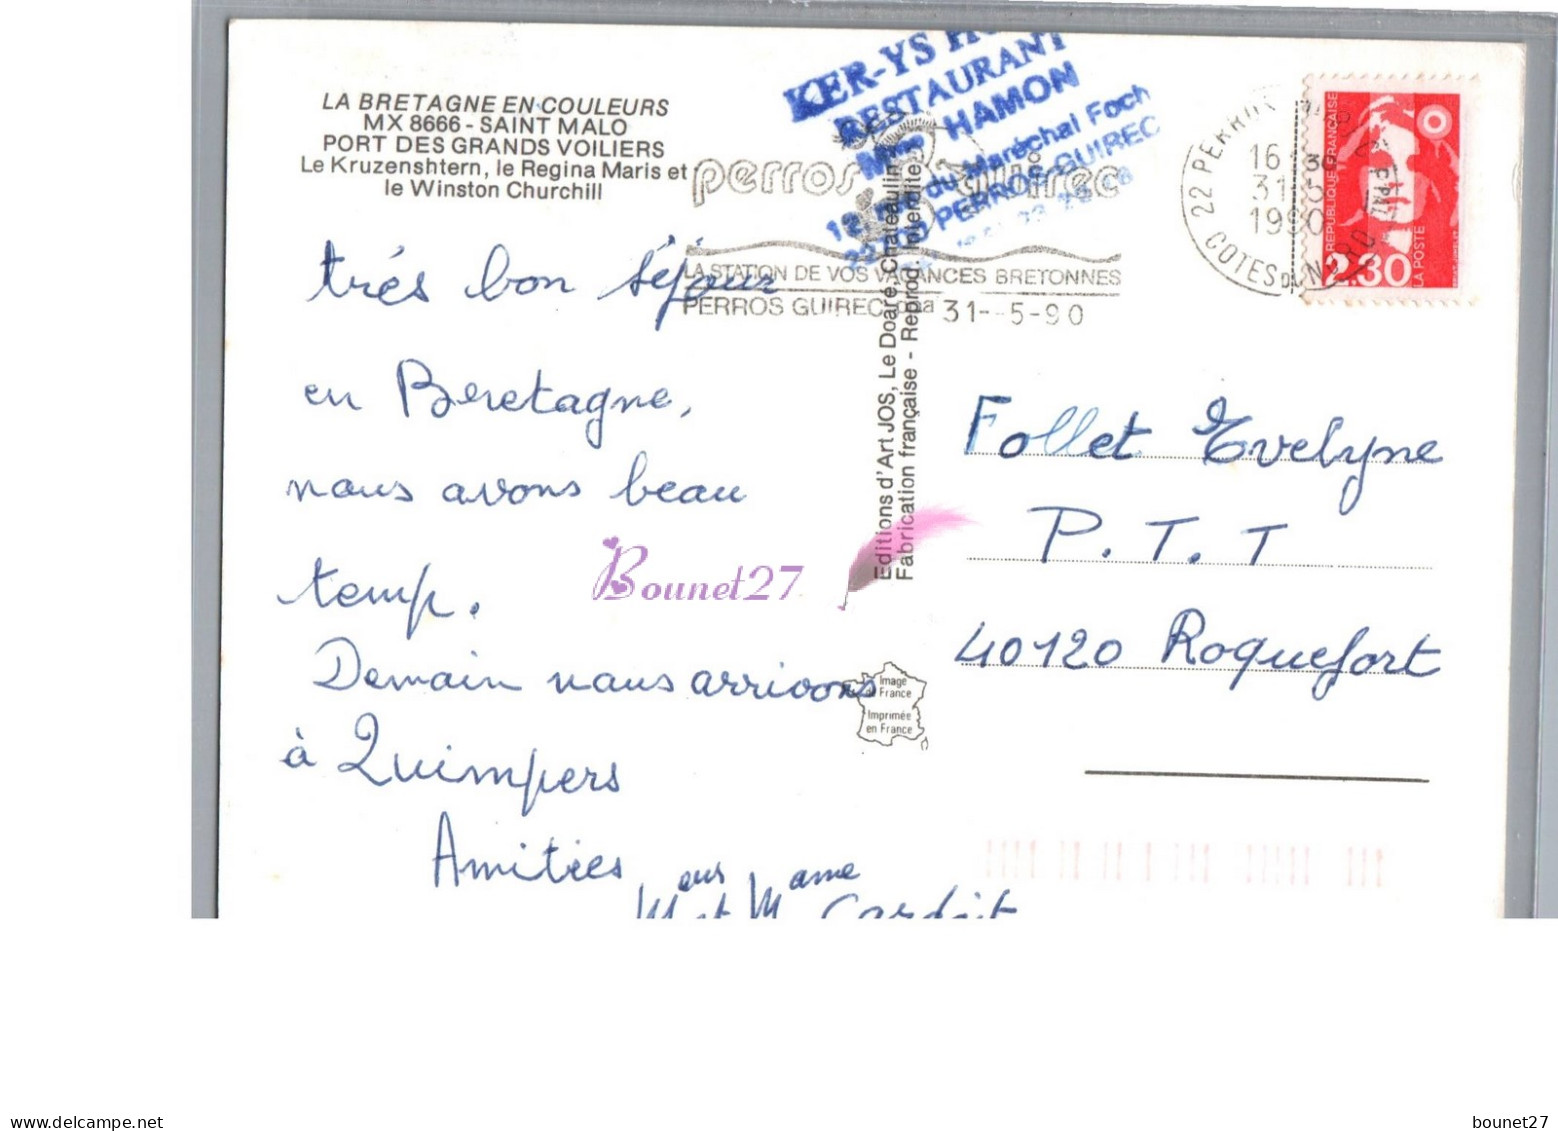 LA BRETAGNE EN COULEURS
MX 8666 - SAINT MALO
PORT DES GRANDS VOILIERS
Le Kruzenshtern, le Regina Maris et
le Winston Churchill
KER-YS
RESTAURANT
Mme HAMON
du Maréchal Foch
PERROS-GUIREC
perros guirec
LA STATION DE VOS VACANCES BRETONNES
PERROS GUIREC
31--5-90
22 PERROS
COTES DU NORD
16
31
1990
REPUBLIQUE FRANÇAISE
2.30
LA POSTE
trés bon séjour
en Beretagne,
nous avons beau
temp.
Demain nous arrivons
à Quimpers
Amitiés
eur ame
M et M Cardoit
Editions d'Art JOS, Le Doaré, Chateaulin
Fabrication française - Reprod. Interdite
Follet Evelyne
P. T. T
40120 Roquefort
Image
de France
Imprimée
en France
Bounet27
bounet27